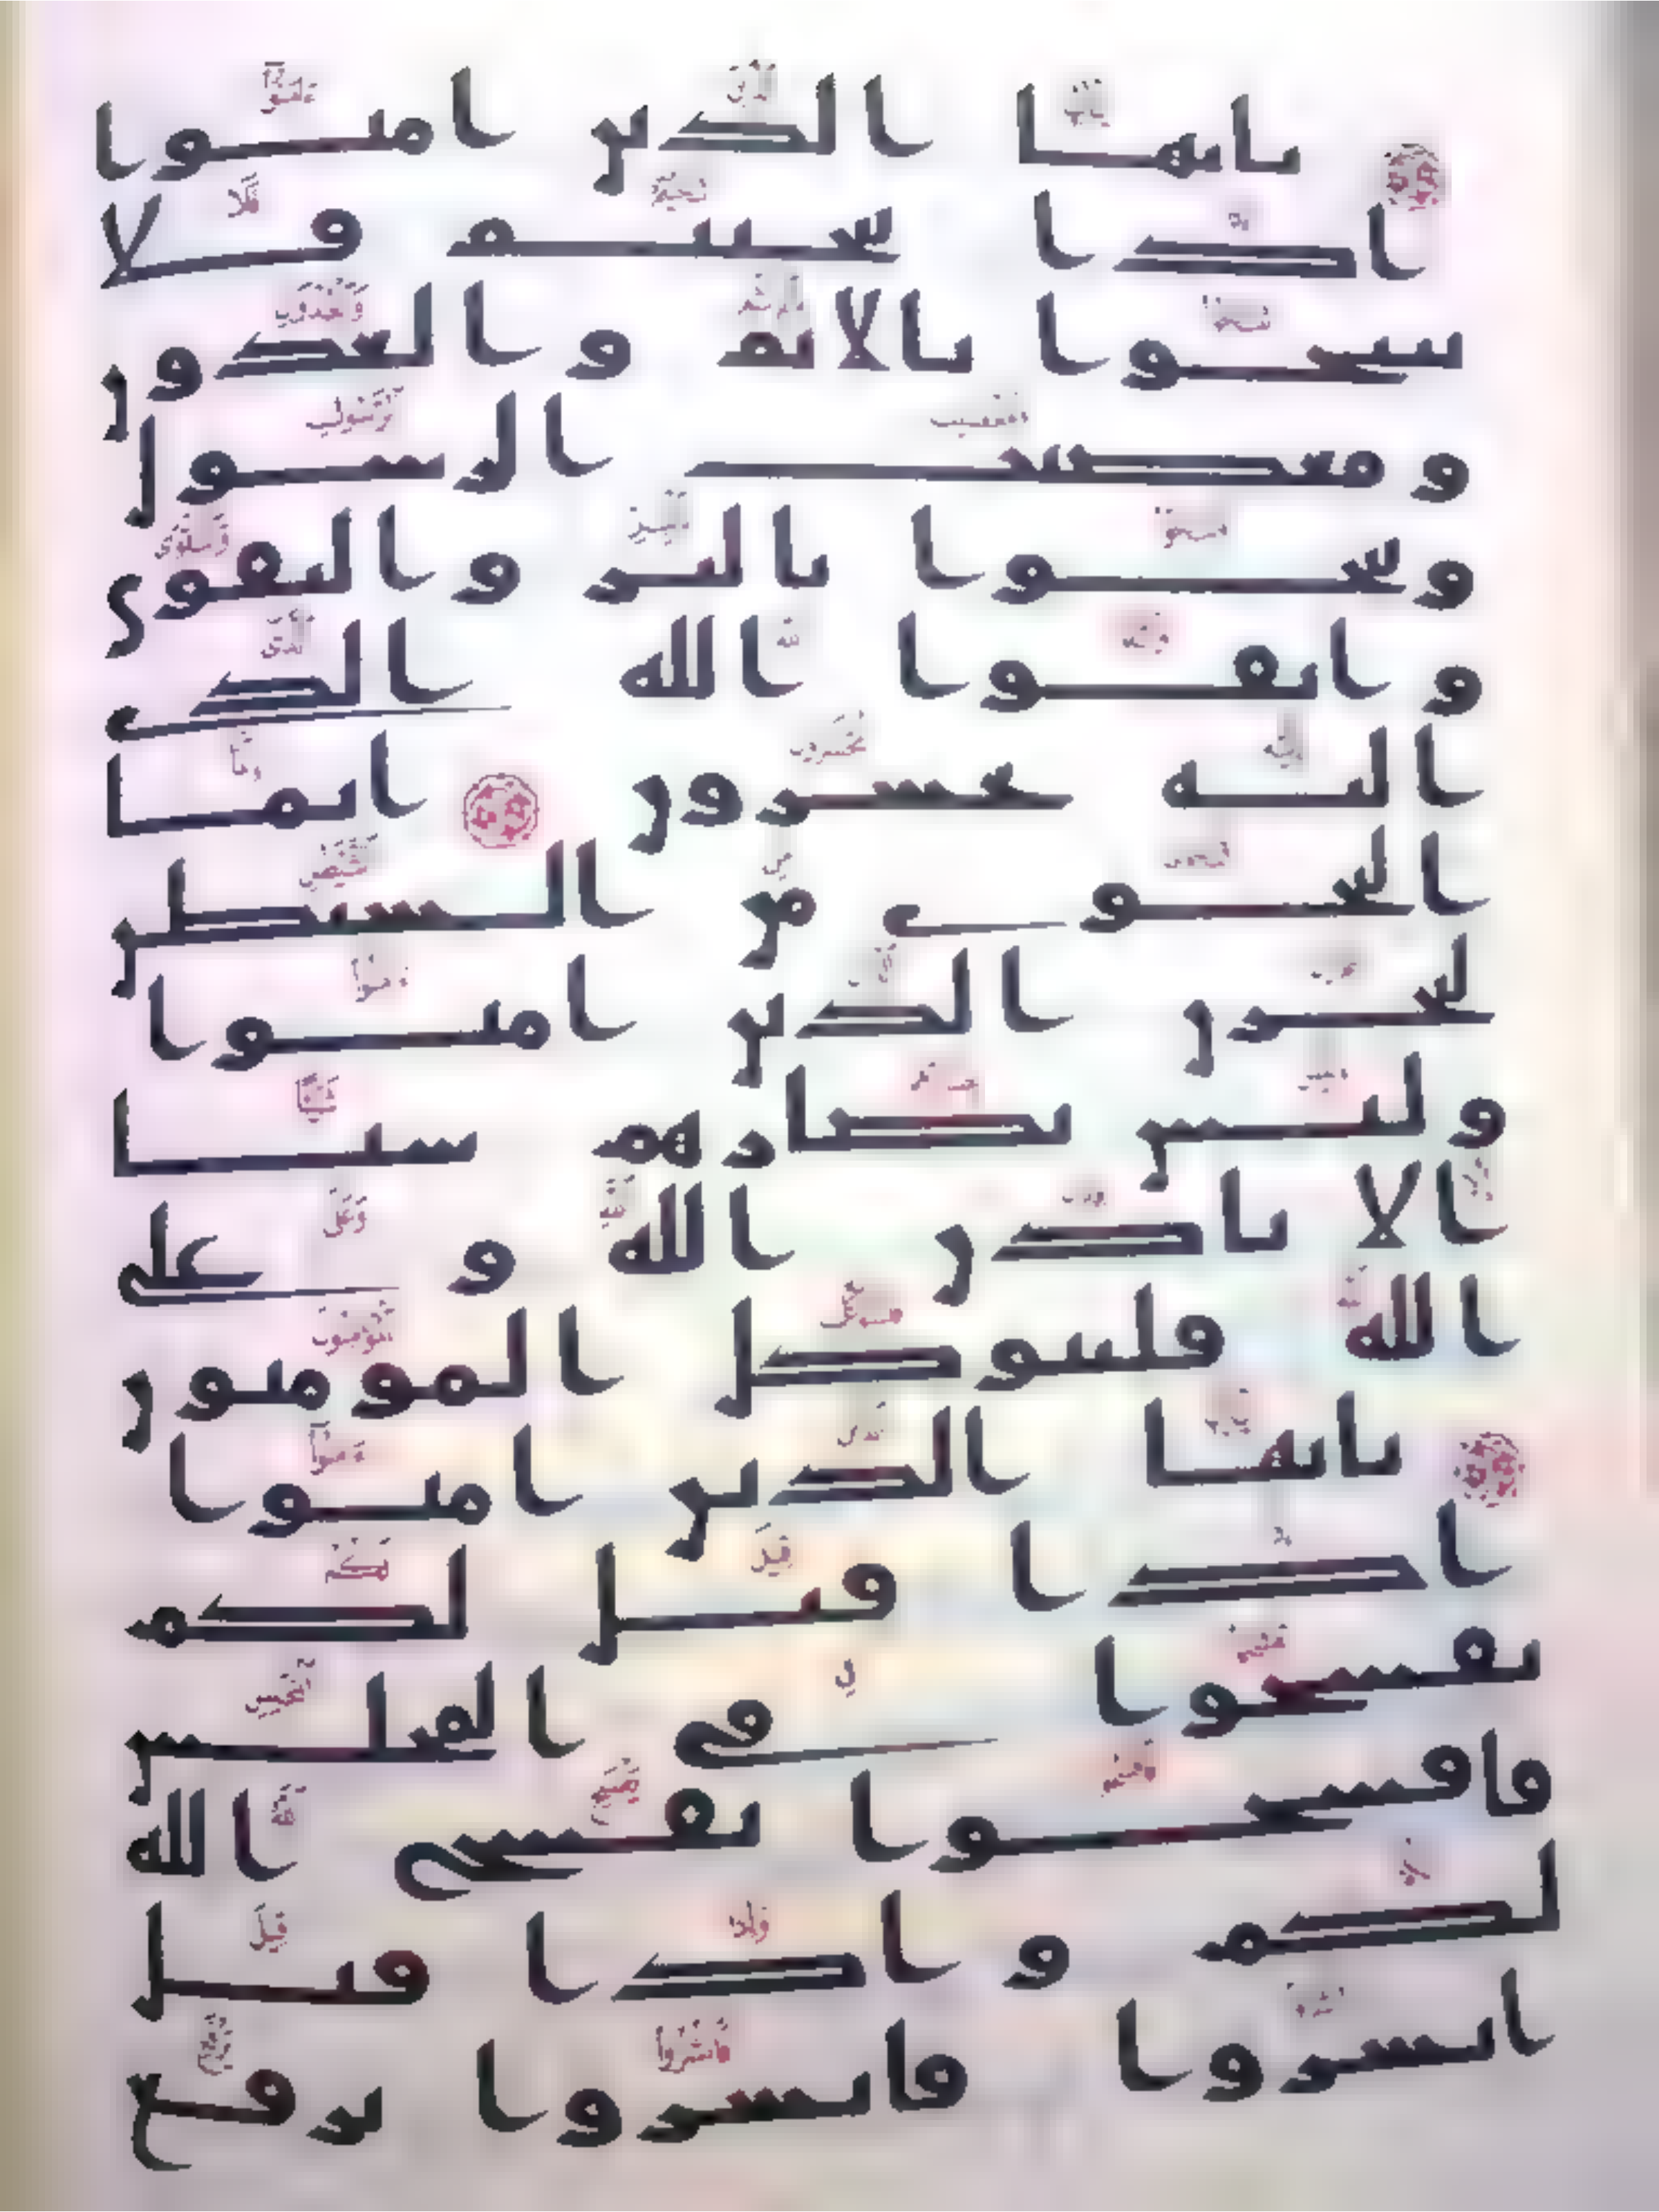 يايها الذين امنوا
اذا تنجيتم فلا
تتنجوا بالاثم والعدون
ومعصيت الرسول
وتنجوا بالبر والتقوى
واتقوا الله الذى
اليه تحشرون انما
النجوى من الشيطن
ليحزن الذين امنوا
وليس بضارهم شيا
الا باذن الله وعلى
الله فليتوكل المومنون
يايها الذين امنوا
اذا قيل لكم
تفسحوا فى المجلس
فافسحوا يفسح الله
لكم واذا قيل
انشزوا فانشزوا يرفع